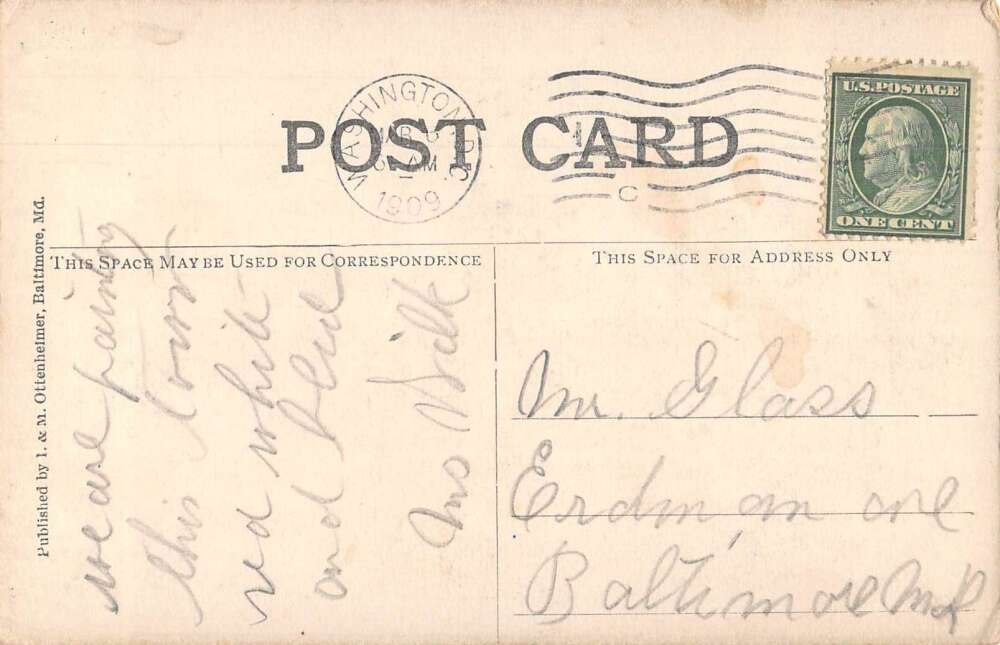 POST CARD
WASHINGTON, D.C.
AM
1909
C
U.S. POSTAGE
ONE CENT
THIS SPACE MAY BE USED FOR CORRESPONDENCE
THIS SPACE FOR ADDRESS ONLY
Published by I. & M. Ottenheimer, Baltimore, Md.
we are painting
this town
red white
and blue
Mr. Glass
Erdman ave
Baltimore Md